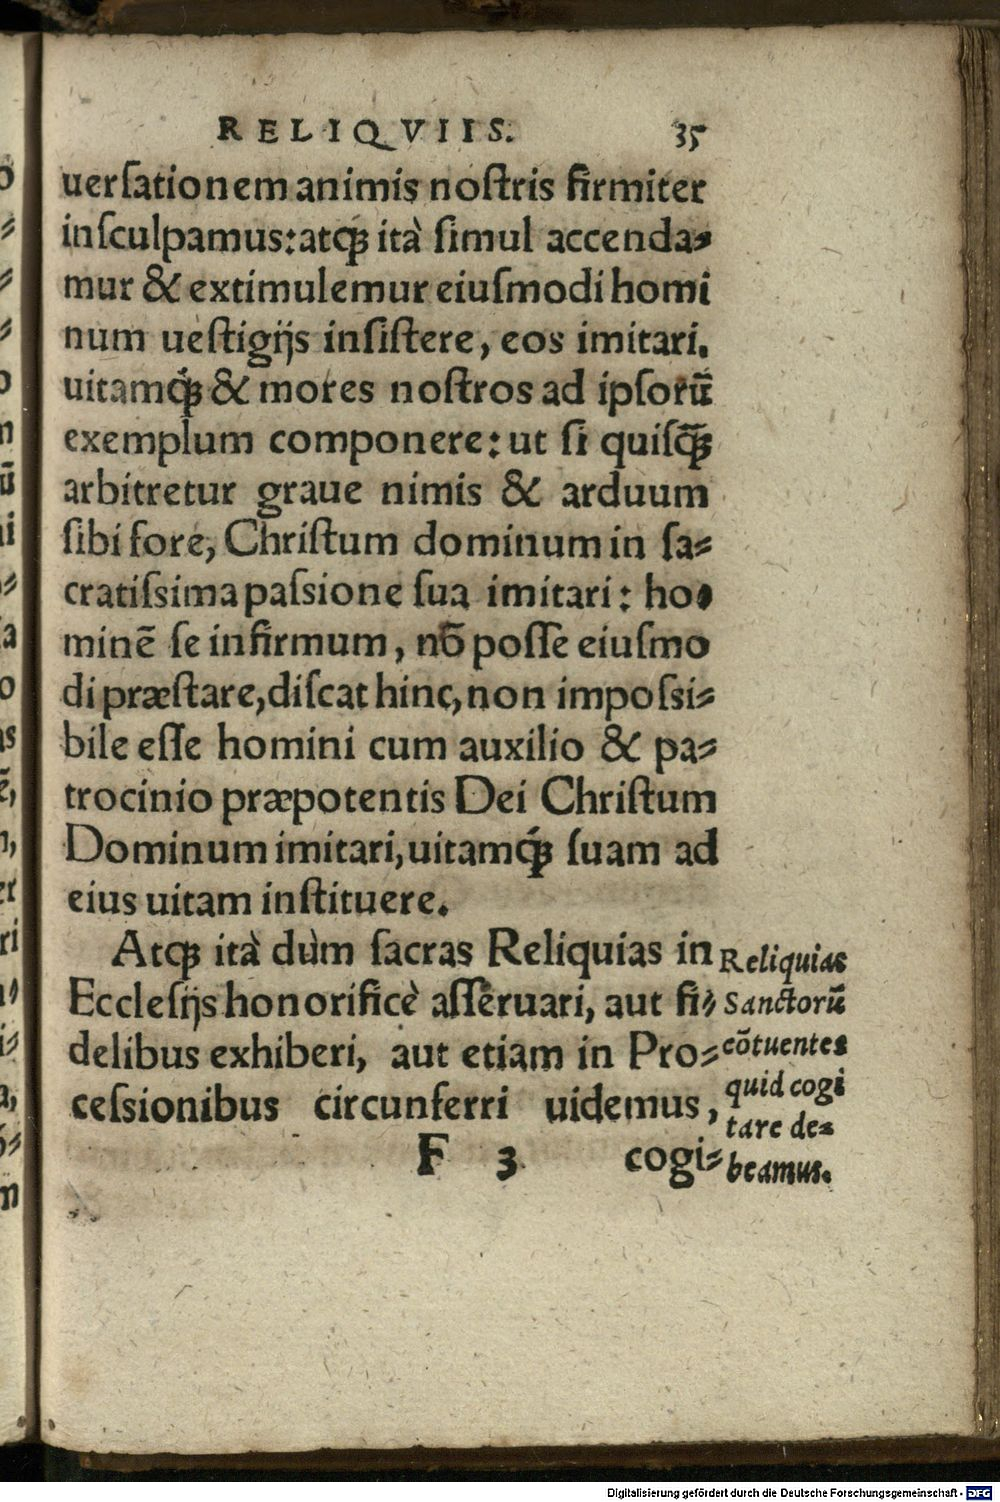 RELIQVIIS. 35
uerſationem animis noſtris firmiter
inſculpamus: atqꝫ ità ſimul accenda⸗
mur & extimulemur eiuſmodi homi
num ueſtigijs inſiſtere, eos imitari.
uitamqꝫ́ & mores noſtros ad ipſorũ
exemplum componere: ut ſi quiſq̃ꝫ
arbitretur graue nimis & arduum
ſibi fore, Chriſtum dominum in ſa⸗
cratiſsima paſsione ſua imitari: ho⸗
minẽ ſe infirmum, nõ poſſe eiuſmo
di præſtare, diſcat hinc, non impoſsi⸗
bile eſſe homini cum auxilio & pa⸗
trocinio præpotentis Dei Chriſtum
Dominum imitari, uitamqꝫ́ ſuam ad
eius uitam inſtituere.
Atqꝫ ità dùm ſacras Reliquias in
Eccleſijs honorificè aſſeruari, aut fi⸗
delibus exhiberi, aut etiam in Pro⸗
ceſsionibus circunferri uidemus,
F 3 cogi⸗
Reliquias
Sanctorũ
cõtuentes
quid cogi
tare de⸗
beamus.
Digitalisierung gefördert durch die Deutsche Forschungsgemeinschaft - DFG